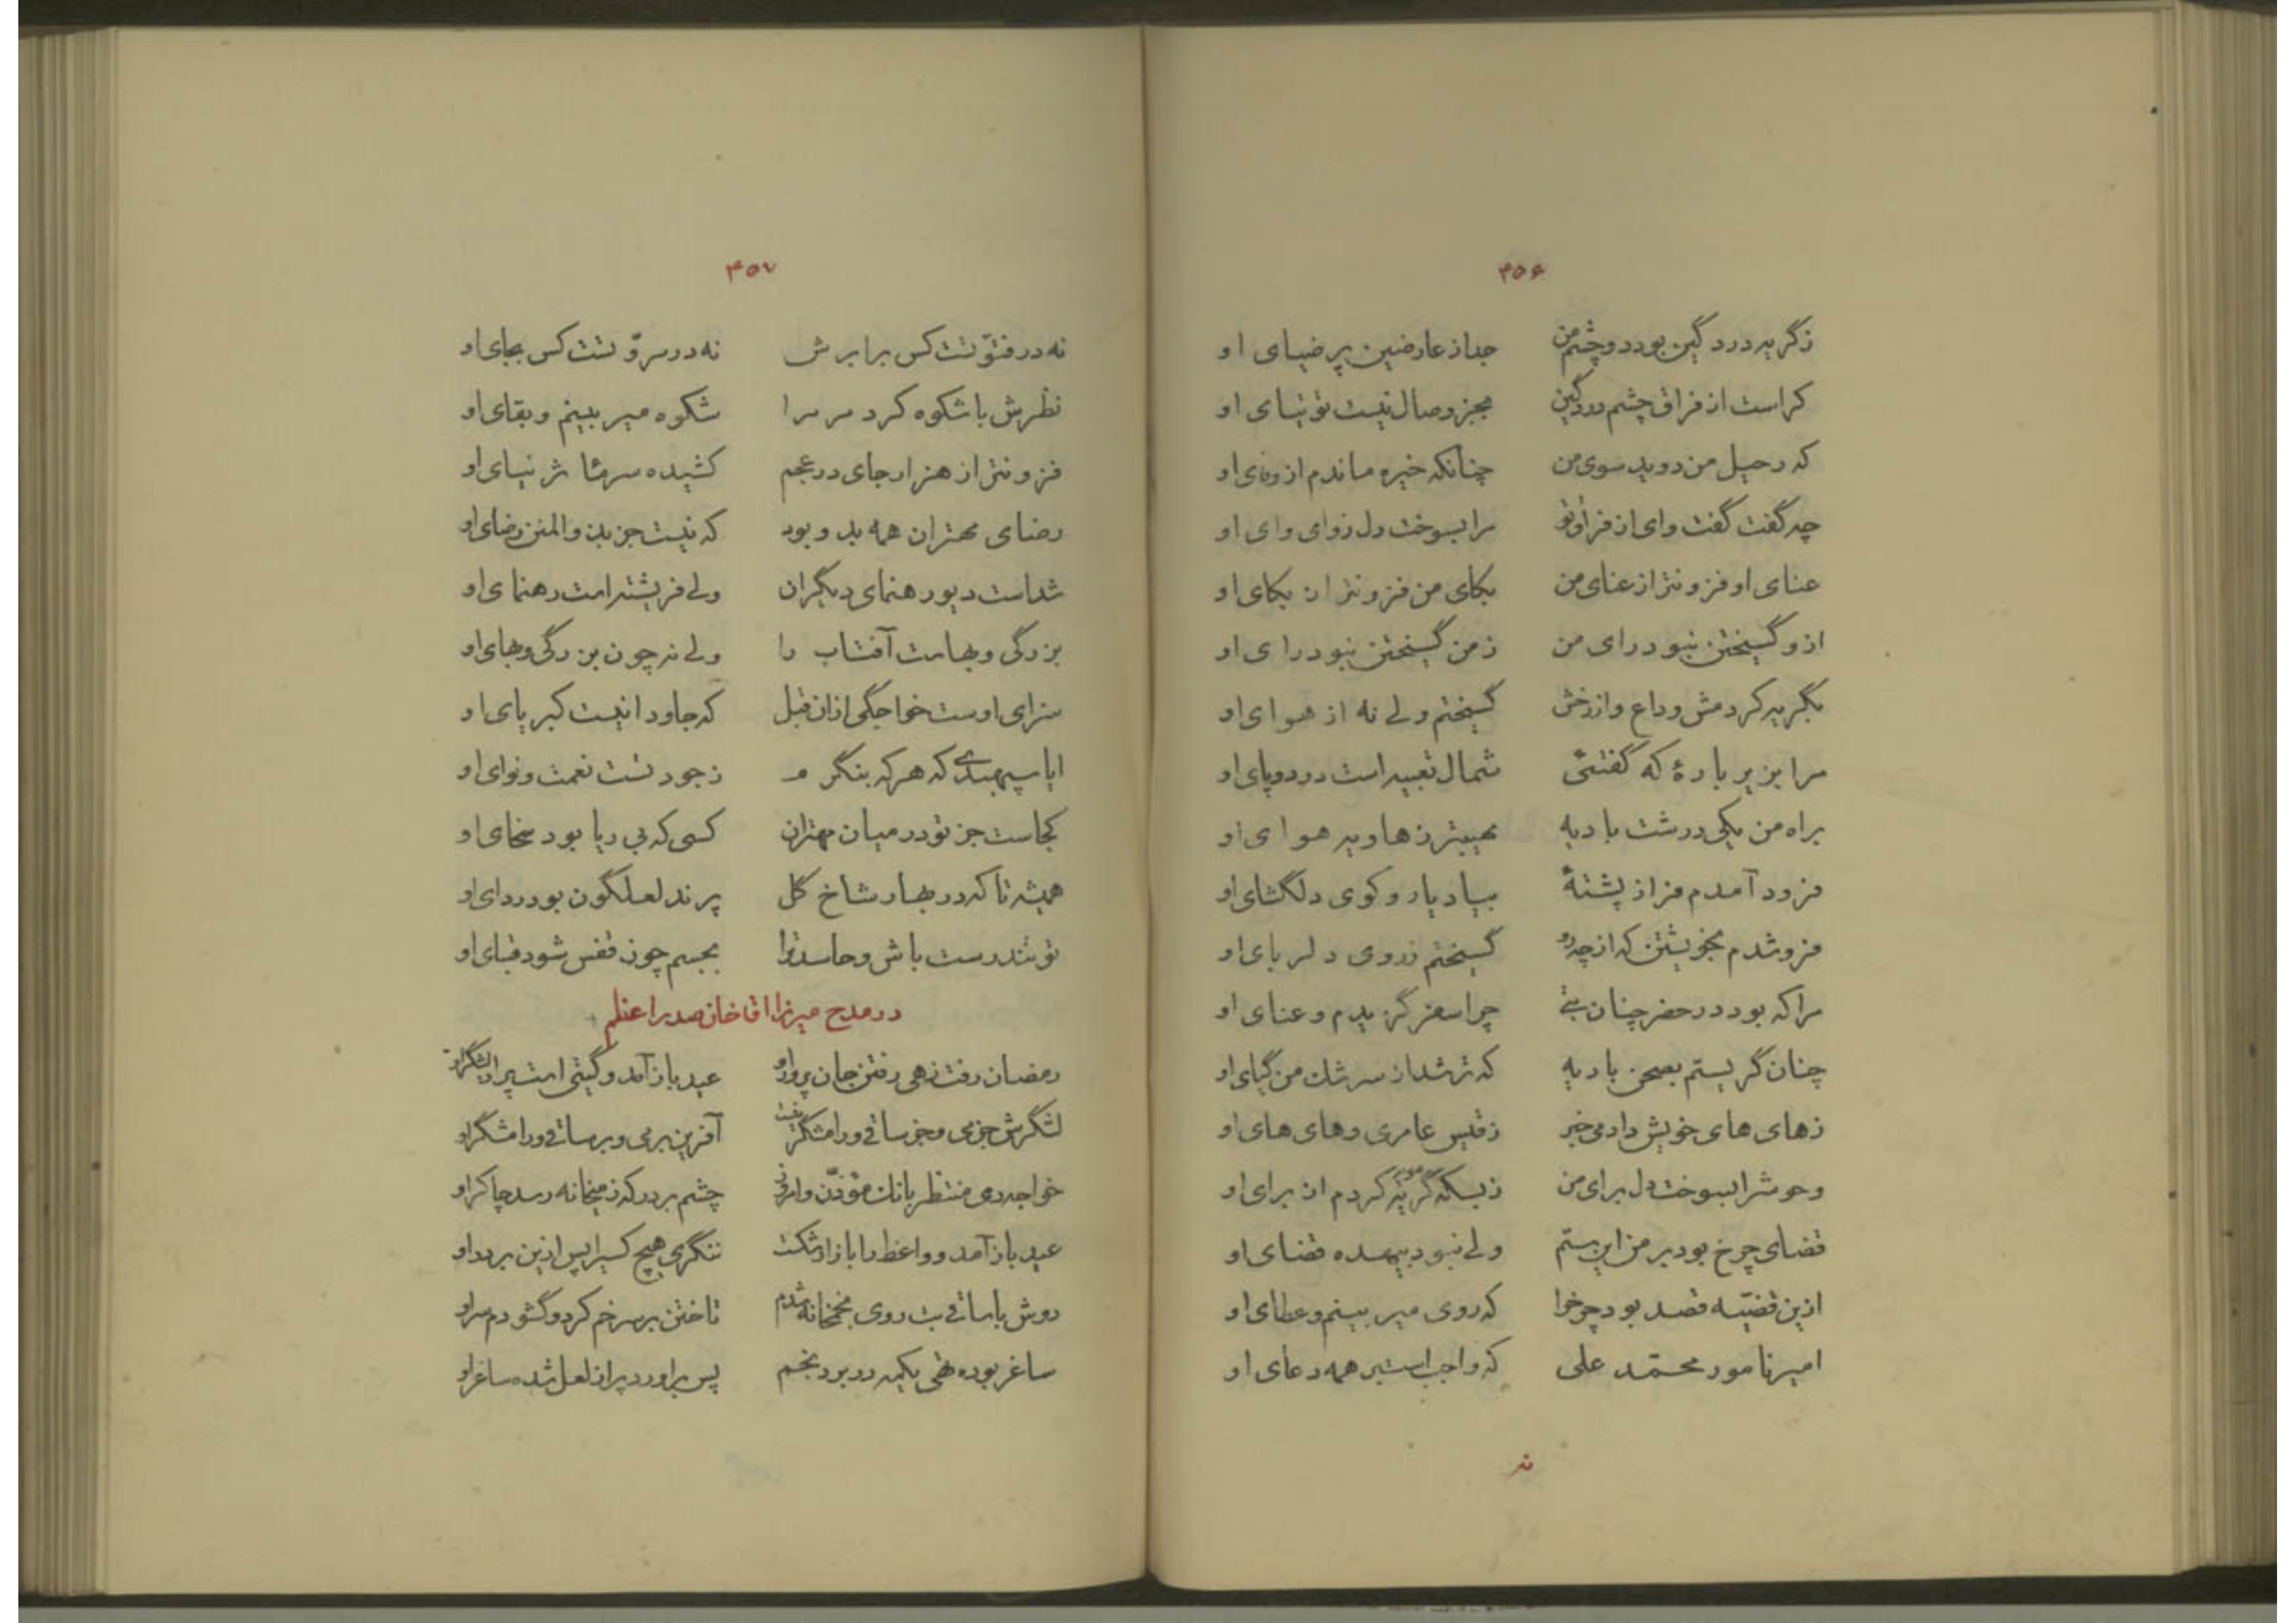 ۴۵۶
زگریه درد گین بود دو چشم من جدا ز عارضین پر ضیای او
کراست از فراق چشم دردگین بجز وصال نیست توتیای او
که رحیل من دوید سوی من چنانکه خیره ماندم از وفای او
چه گفت گفت وای از فراق تو مرا بسوخت دل ز وای وای او
عنای او فزونتر از عنای من بکای من فزونتر از بکای او
ازو گسیختن نبود رای من ز من گسیختن نبود رای او
بگریه کردمش وداع و از رخش گسیختم ولی نه از هوای او
مرا بزیر بارهٔ که گفتئی شمال تعبیه است در دو پای او
براه من یکی درشت بادیه مهیبتر ز هاویه هوای او
فرود آمدم فراز پشتهٔ بیاد یار و کوی دلگشای او
فرو شدم بخویشتن که از چه رو گسیختم ز روی دلربای او
مرا که بود در حضر چنان بتی چرا سفر گزیدم و عنای او
چنان گریستم بصحن بادیه که تر شد از سرشک من گیای او
ز های های خویش دادمی خبر ز قیس عامری و های های او
وحوش را بسوخت دل برای من ز بسکه گریه مویه کردم از برای او
قضای چرخ بود بر من این ستم ولی نبود بیهده قضای او
ازین قضیّه قصد بود چرخ را که روی میر بینم و عطای او
امیر نامور محمّد علی که واجب است بر همه دعای او
نه
۴۵۷
نه در فتوّتست کس برابرش نه در مروّتست کس بجای او
نظرش با شکوه کرد مر مرا شکوه میر بینم و بقای او
فزونتر از هزار جای در عجم کشیده سر مآثر نیای او
رضای مهتران همه بد و بود که نیست جز بذوالمنن رضای او
شداست دیو رهنمای دیگران ولی فریشته است رهنمای او
بزرگی و بهاست آفتاب را ولی نه چون بزرگی و بهای او
سزای اوست خواجگی ازان قبل که جاودانیست کبریای او
ایا سپهبدی که هر که بنگرم ز جود تست نعمت و نوای او
کجاست جز تو در میان مهتران کسی که بی ریا بود سخای او
همیشه تا که در بهار شاخ گل پرند لعلگون بود ردای او
تو تندرست باش و حاسد ترا بجسم چون قفس شود قبای او
در مدح میرزا اقاخان صدر اعظم
رمضان رفت زهی رفتن جان پرور او عید باز آمد و گیتی است پر از لشگر او
لشگرش جز می و جز ساقی و رامشگر نیست آفرین بر می و بر ساقی و رامشگر او
خواجه دی منتظر بانک مؤذّن و امروز چشم بر در که ز میخانه رسد چاکر او
عید باز آمد و واعظ را بازار شکست ننگری هیچ کسی را پس ازین بر در او
دوش با ساقی بت روی بخمخانه شدم تاختن بر سر خم کرد و گشودم سر او
ساغر بوده تهی یکمه در برد بخم پس براورد پر از لعل شده ساغر او